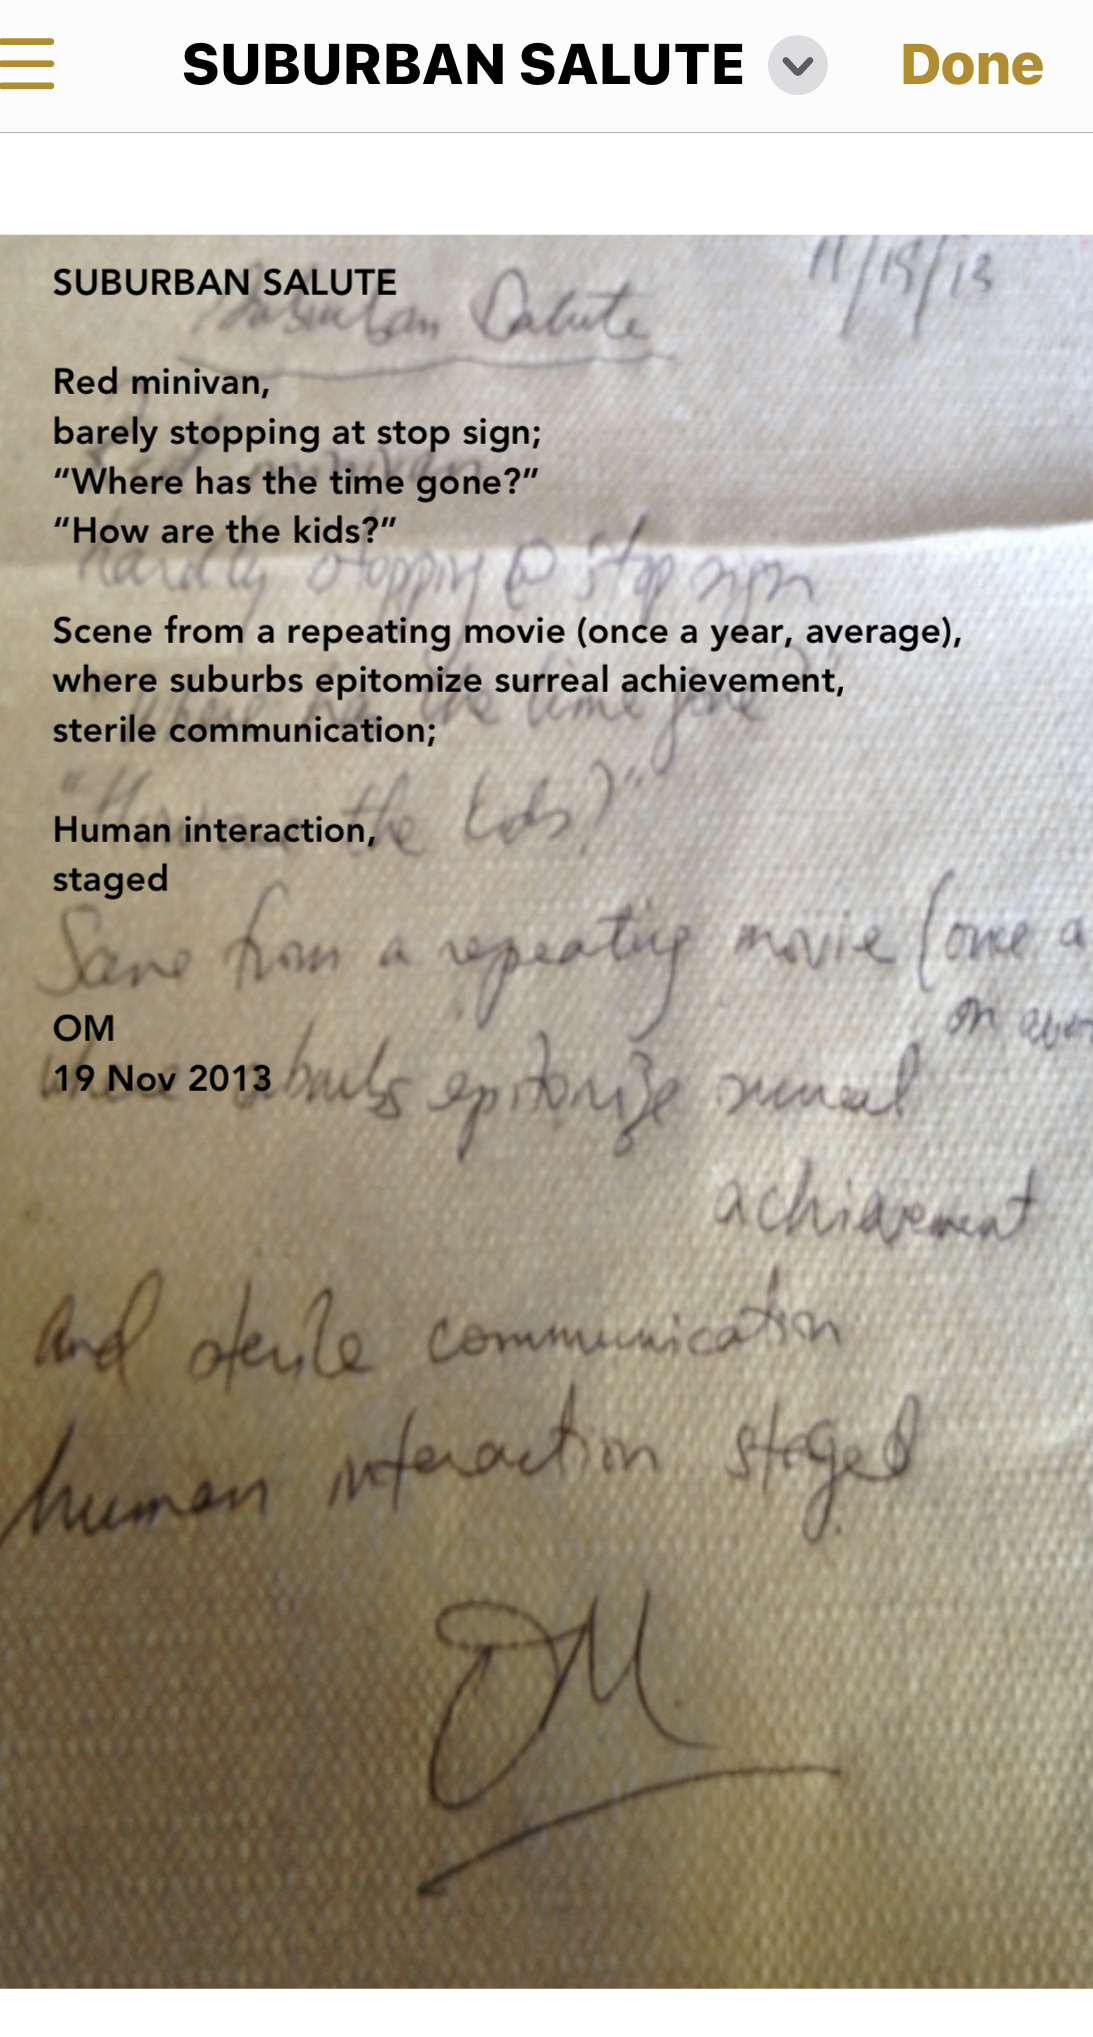 SUBURBAN SALUTE
Done
SUBURBAN SALUTE
Red minivan,
barely stopping at stop sign;
“Where has the time gone?”
“How are the kids?”
Scene from a repeating movie (once a year, average),
where suburbs epitomize surreal achievement,
sterile communication;
Human interaction,
staged
OM
19 Nov 2013
11/19/13
Suburban Salute
Red minivan
hardly stopping @ stop sign
"Where has the time gone?"
"How are the kids?"
Scene from a repeating movie (once a
on
where suburbs epitomize surreal
achievement
and sterile communication
human interaction staged
OM